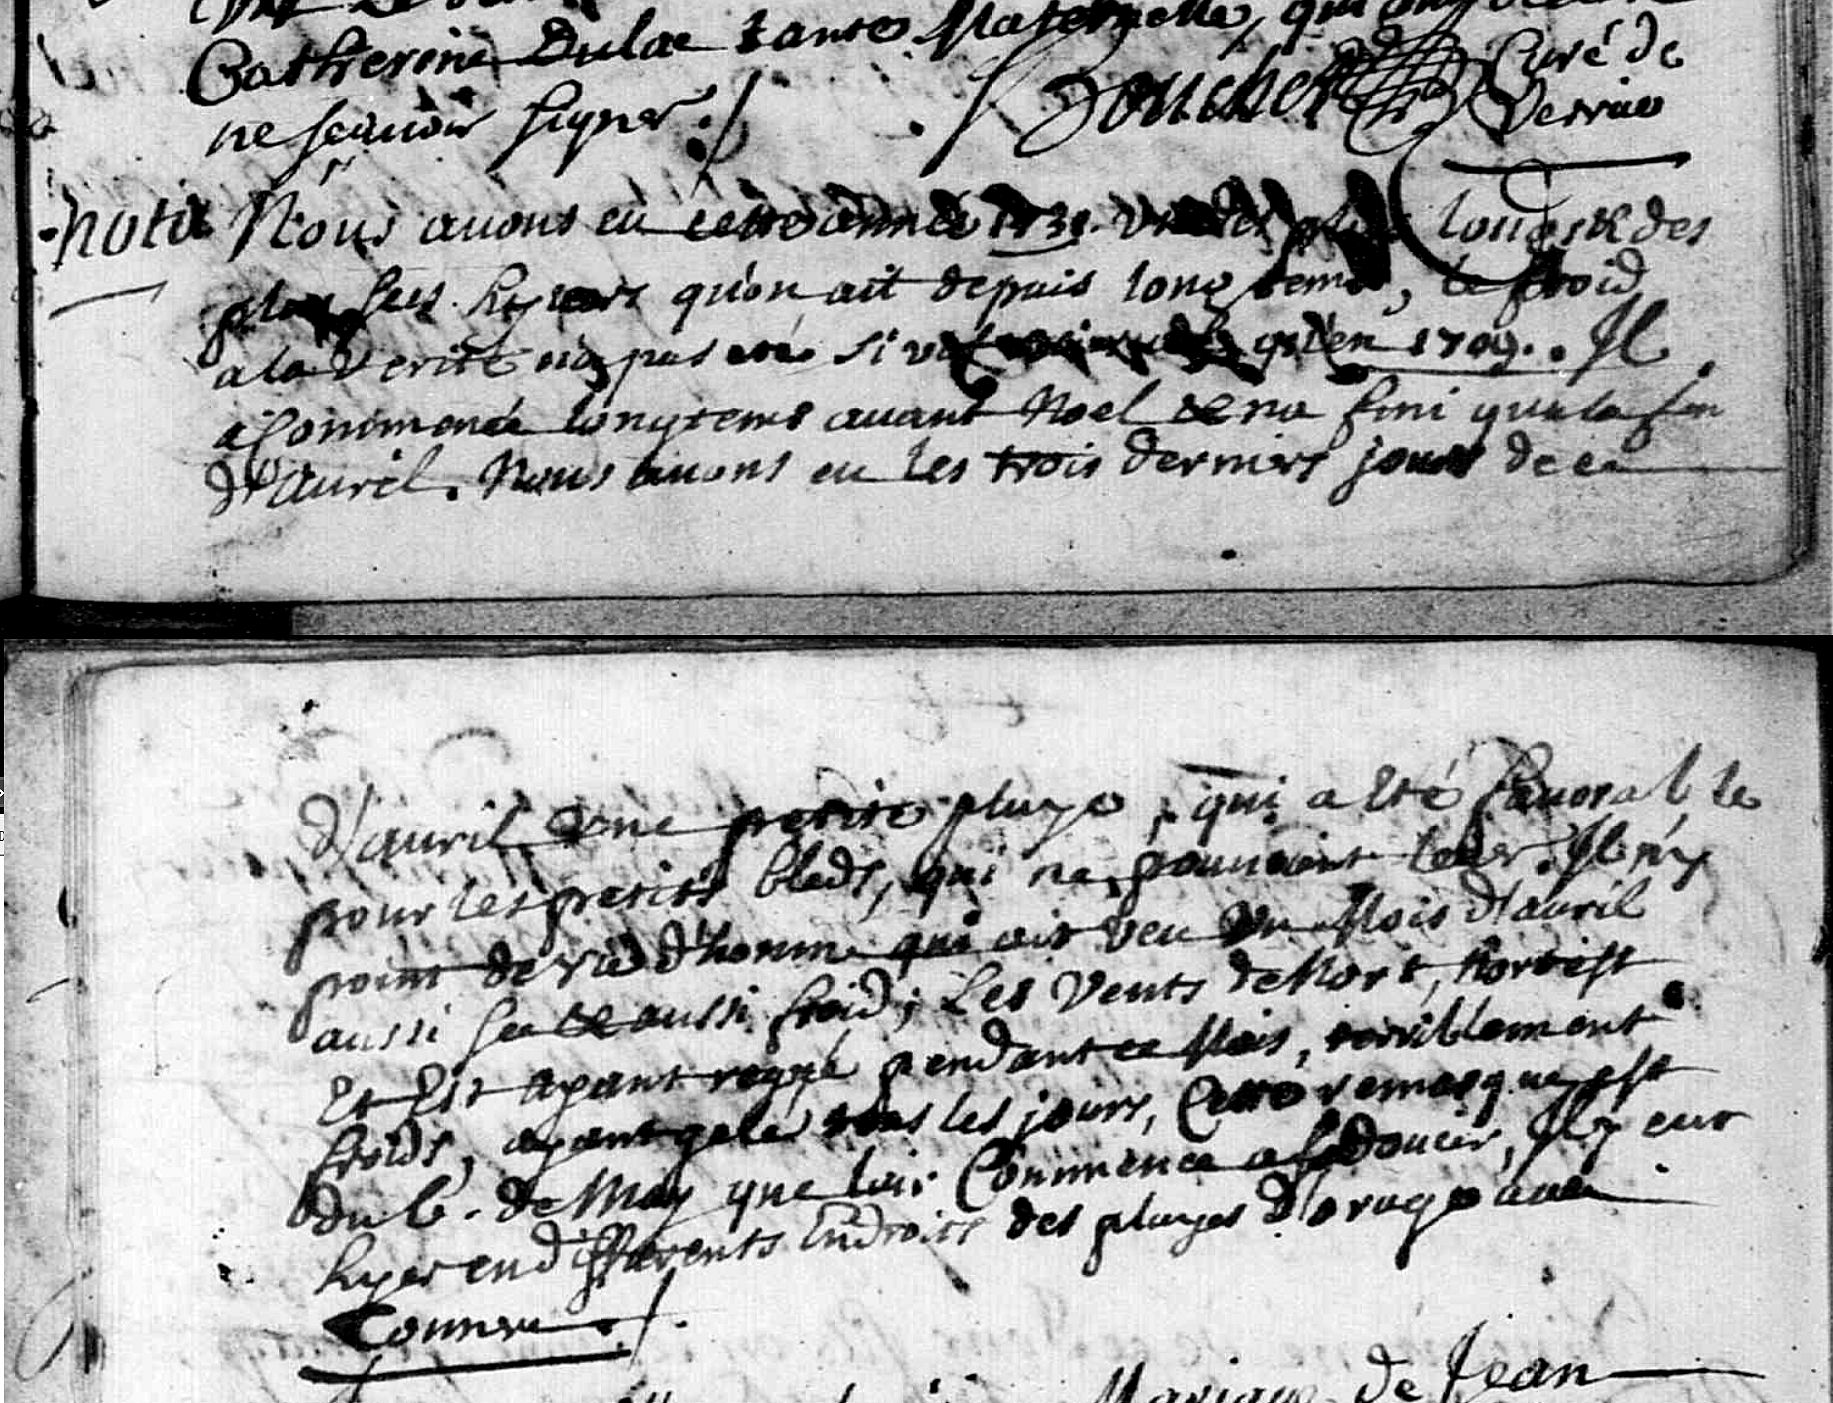 Catherine Dulac tante Maternelle, qui ont
ne scauoir signer ./. ./ Douchet Curé de
Verrine
nota Nous auons eu cette année 1731. un des plus longs & des
plus secs hyuers qu'on ait depuis long tems, le froid
a la verité n'a pas eté si qu'en 1709. Il
a Commencé longtems auant Noel & n'a fini qu'a la fin
d'Auril. Nous auons eu les trois derniers jours de ce
d'auril une petite pluye, qui a Eté fauorable
pour les petits bleds, qui ne pouuoient leuer. Il n'y
point de vie d'homme qui ait veu un Mois d'auril
aussi sec & aussi froid; Les Vents de Nort, Nortest
Et Est ayant regné pendant ce Mois, terriblement
froids, ayant gelé tous les jours, Cette remarque est
du 6. de May que l'air Commence a s'adoucir, Il y eut
hyer en differents Endroits des pluyes d'orage auec
Tonnerre ./.
Mariage de Jean